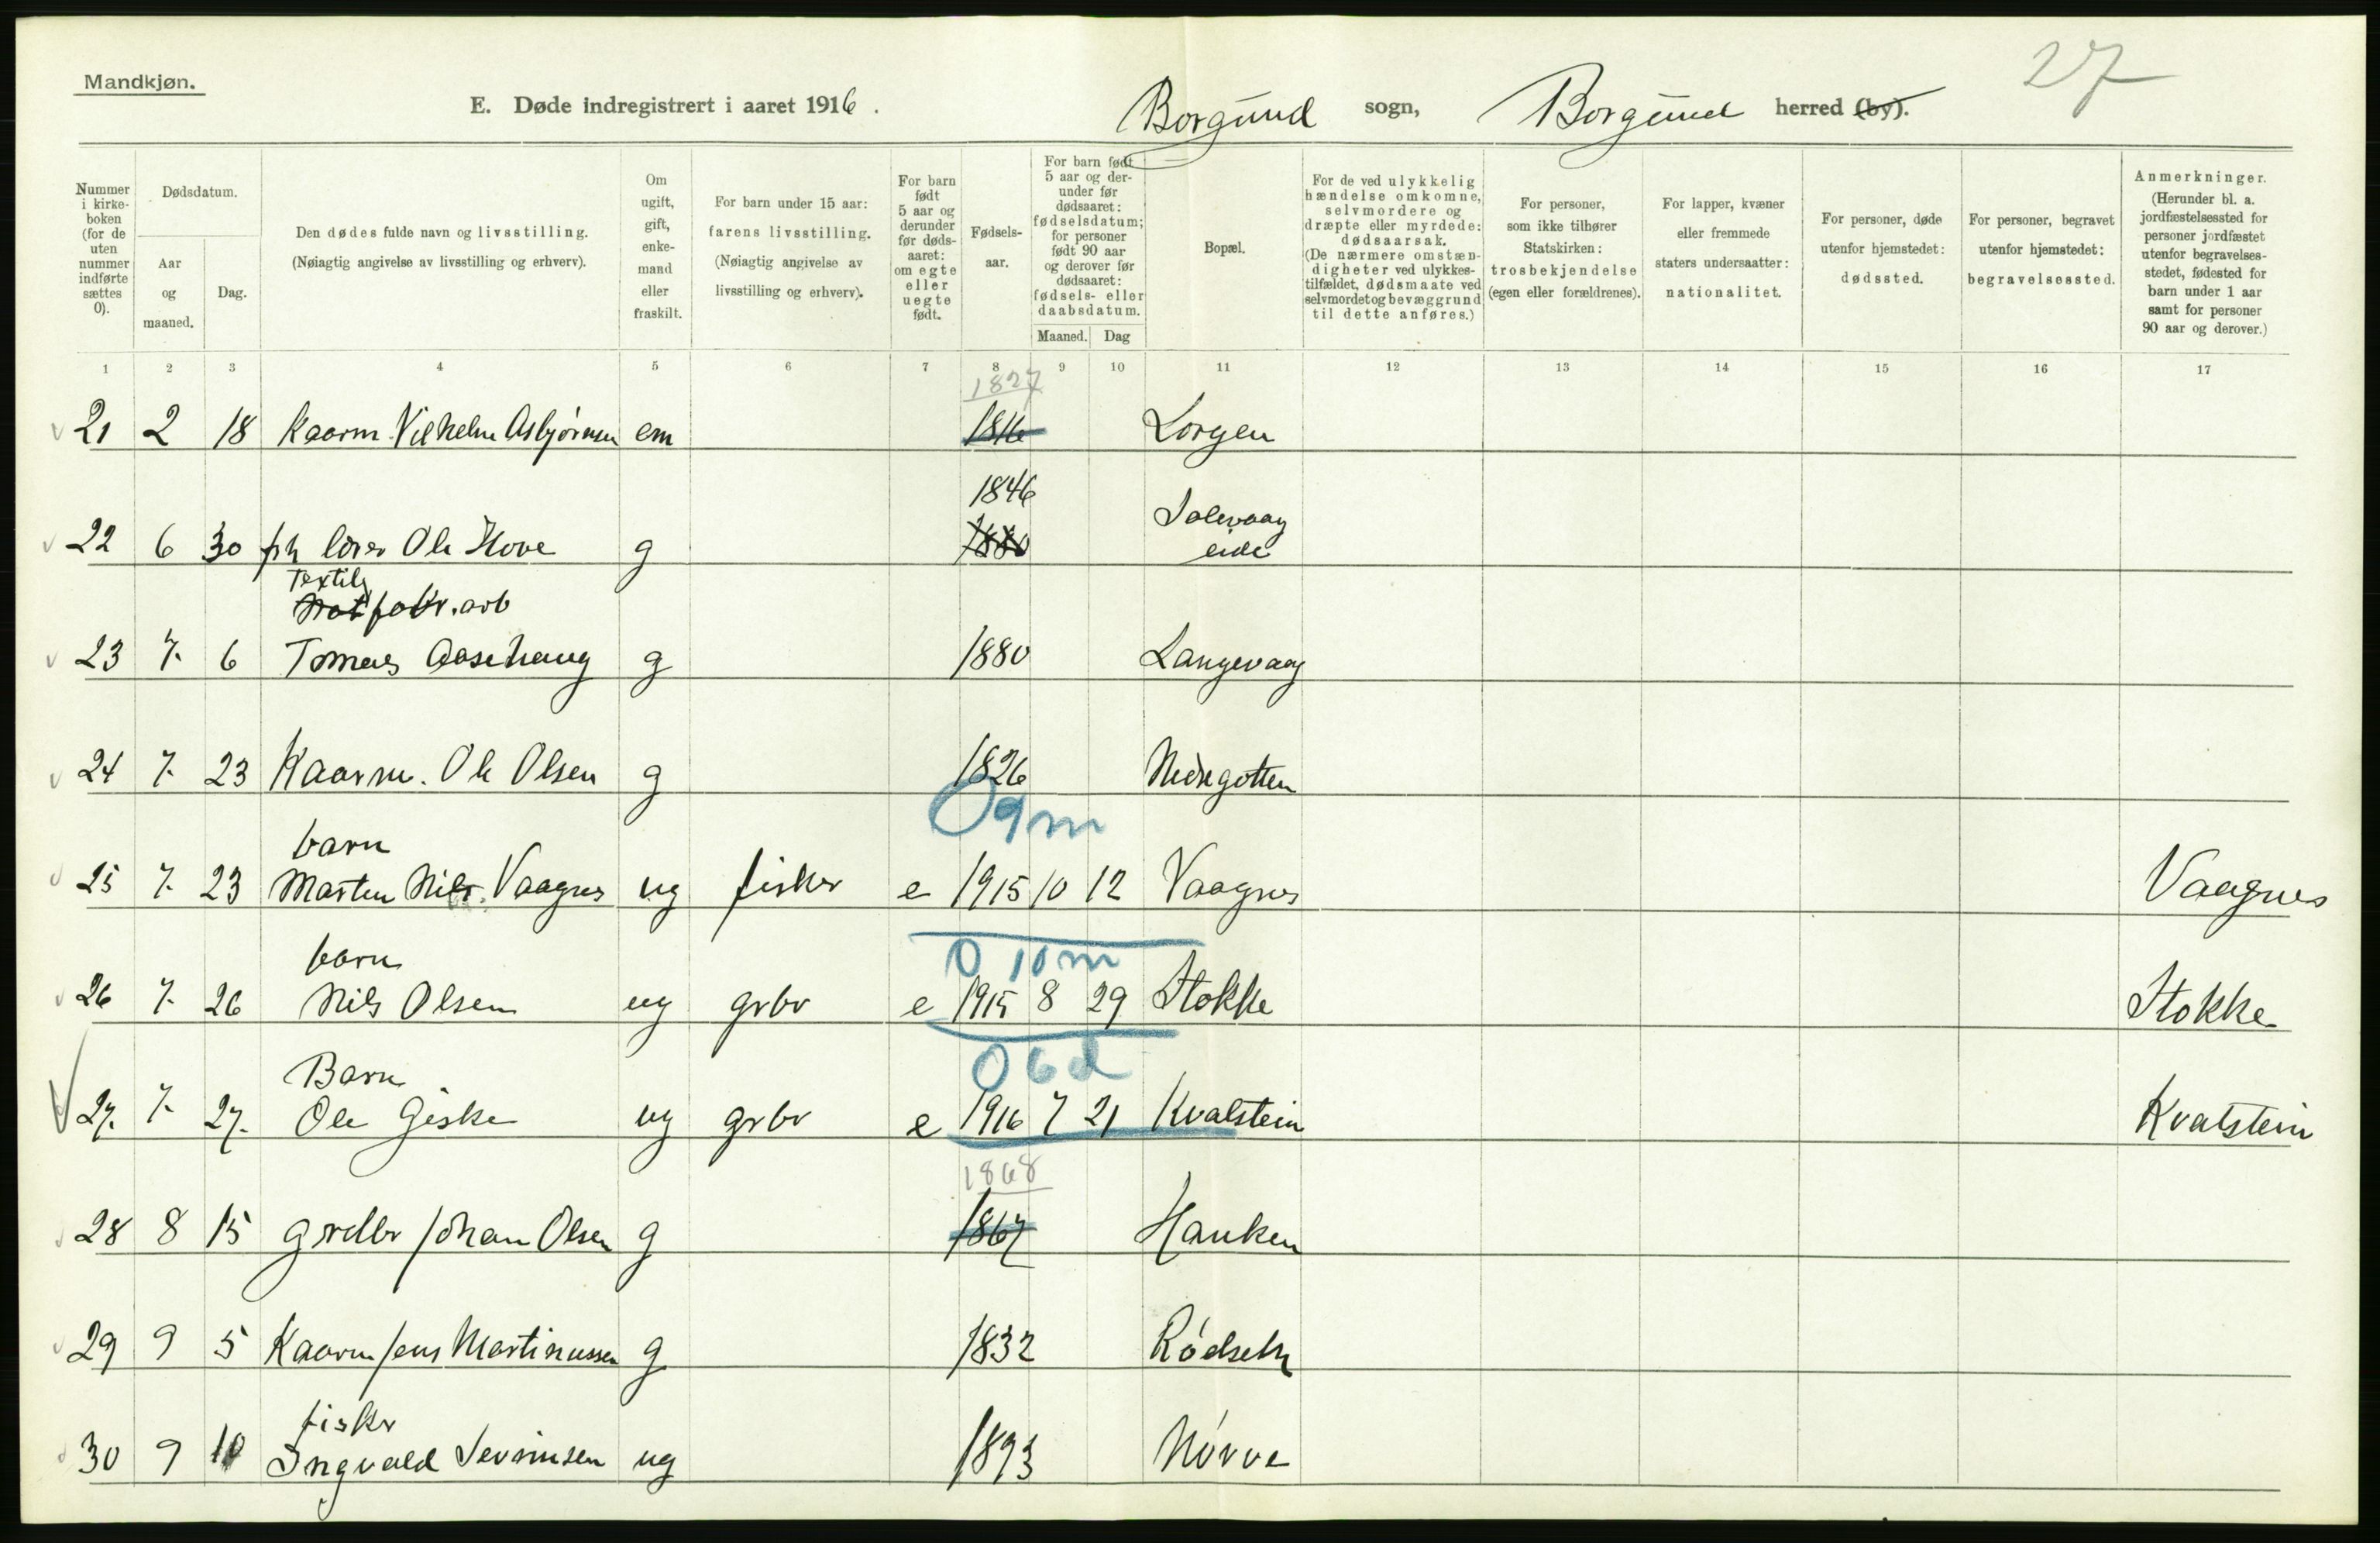 27
Mandkjøn.
E. Døde indregistrert i aaret 1916. Borgund sogn, Borgund herred (by).
Nummer i kirkeboken (for de uten nummer indførte sættes 0).
Dødsdatum.
Aar og maaned.
Dag.
Den dødes fulde navn og livsstilling.
(Nøiagtig angivelse av livsstilling og erhverv).
Om ugift, gift, enkemand eller fraskilt.
For barn under 15 aar: farens livsstilling. (Nøiagtig angivelse av livsstilling og erhverv).
For barn født 5 aar og derunder før dødsaaret: om egte eller uegte født.
Fødselsaar.
For barn født 5 aar og derunder før dødsaaret: fødselsdatum; for personer født 90 aar og derover før dødsaaret: fødsels- eller daabsdatum.
Maaned. Dag
Bopæl.
For de ved ulykkelig hændelse omkomne, selvmordere og dræpte eller myrdede: dødsaarsak. (De nærmere omstændigheter ved ulykkestilfældet, dødsmaate ved selvmordet og bevæggrund til dette anføres.)
For personer, som ikke tilhører Statskirken: trosbekjendelse (egen eller forældrenes).
For lapper, kvæner eller fremmede staters undersaatter: nationalitet.
For personer, døde utenfor hjemstedet: dødssted.
For personer, begravet utenfor hjemstedet: begravelsessted.
Anmerkninger. (Herunder bl. a. jordfæstelsessted for personer jordfæstet utenfor begravelsesstedet, fødested for barn under 1 aar samt for personer 90 aar og derover.)
1 2 3 4 5 6 7 8 9 10 11 12 13 14 15 16 17
1827
21 2 18 Kaarm Vilhelm Asbjørnsen em 1816 Lorgen
1846
22 6 30 frh lærer Ole Hove g 1880 Solevaag
eide
Textil
Not fabr. arb
23 7. 6 Tomas Aasehaug g 1880 Langevaag
24 7. 23 Kaarm. Ole Olsen g 1826 Nedregotten
0 9m
barn
25 7. 23 Marten Nils Vaagnes ug fisker e 1915 10 12 Vaagnes Vaagnes
0 10m
barn
26 7. 26 Nils Olsen ug grbr e 1915 8 29 Stokke Stokke
0 6d
Barn
27. 7. 27. Ole Giske ug grbr e 1916 7 21 Kvalstein Kvalstein
1868
28 8 15 grdbr Johan Olsen g 1867 Hanken
29 9 5 Kaarm Jens Martinussen g 1832 Rødseth
fisker
30 9 10 Ingvald Severinsen ug 1893 Nørve